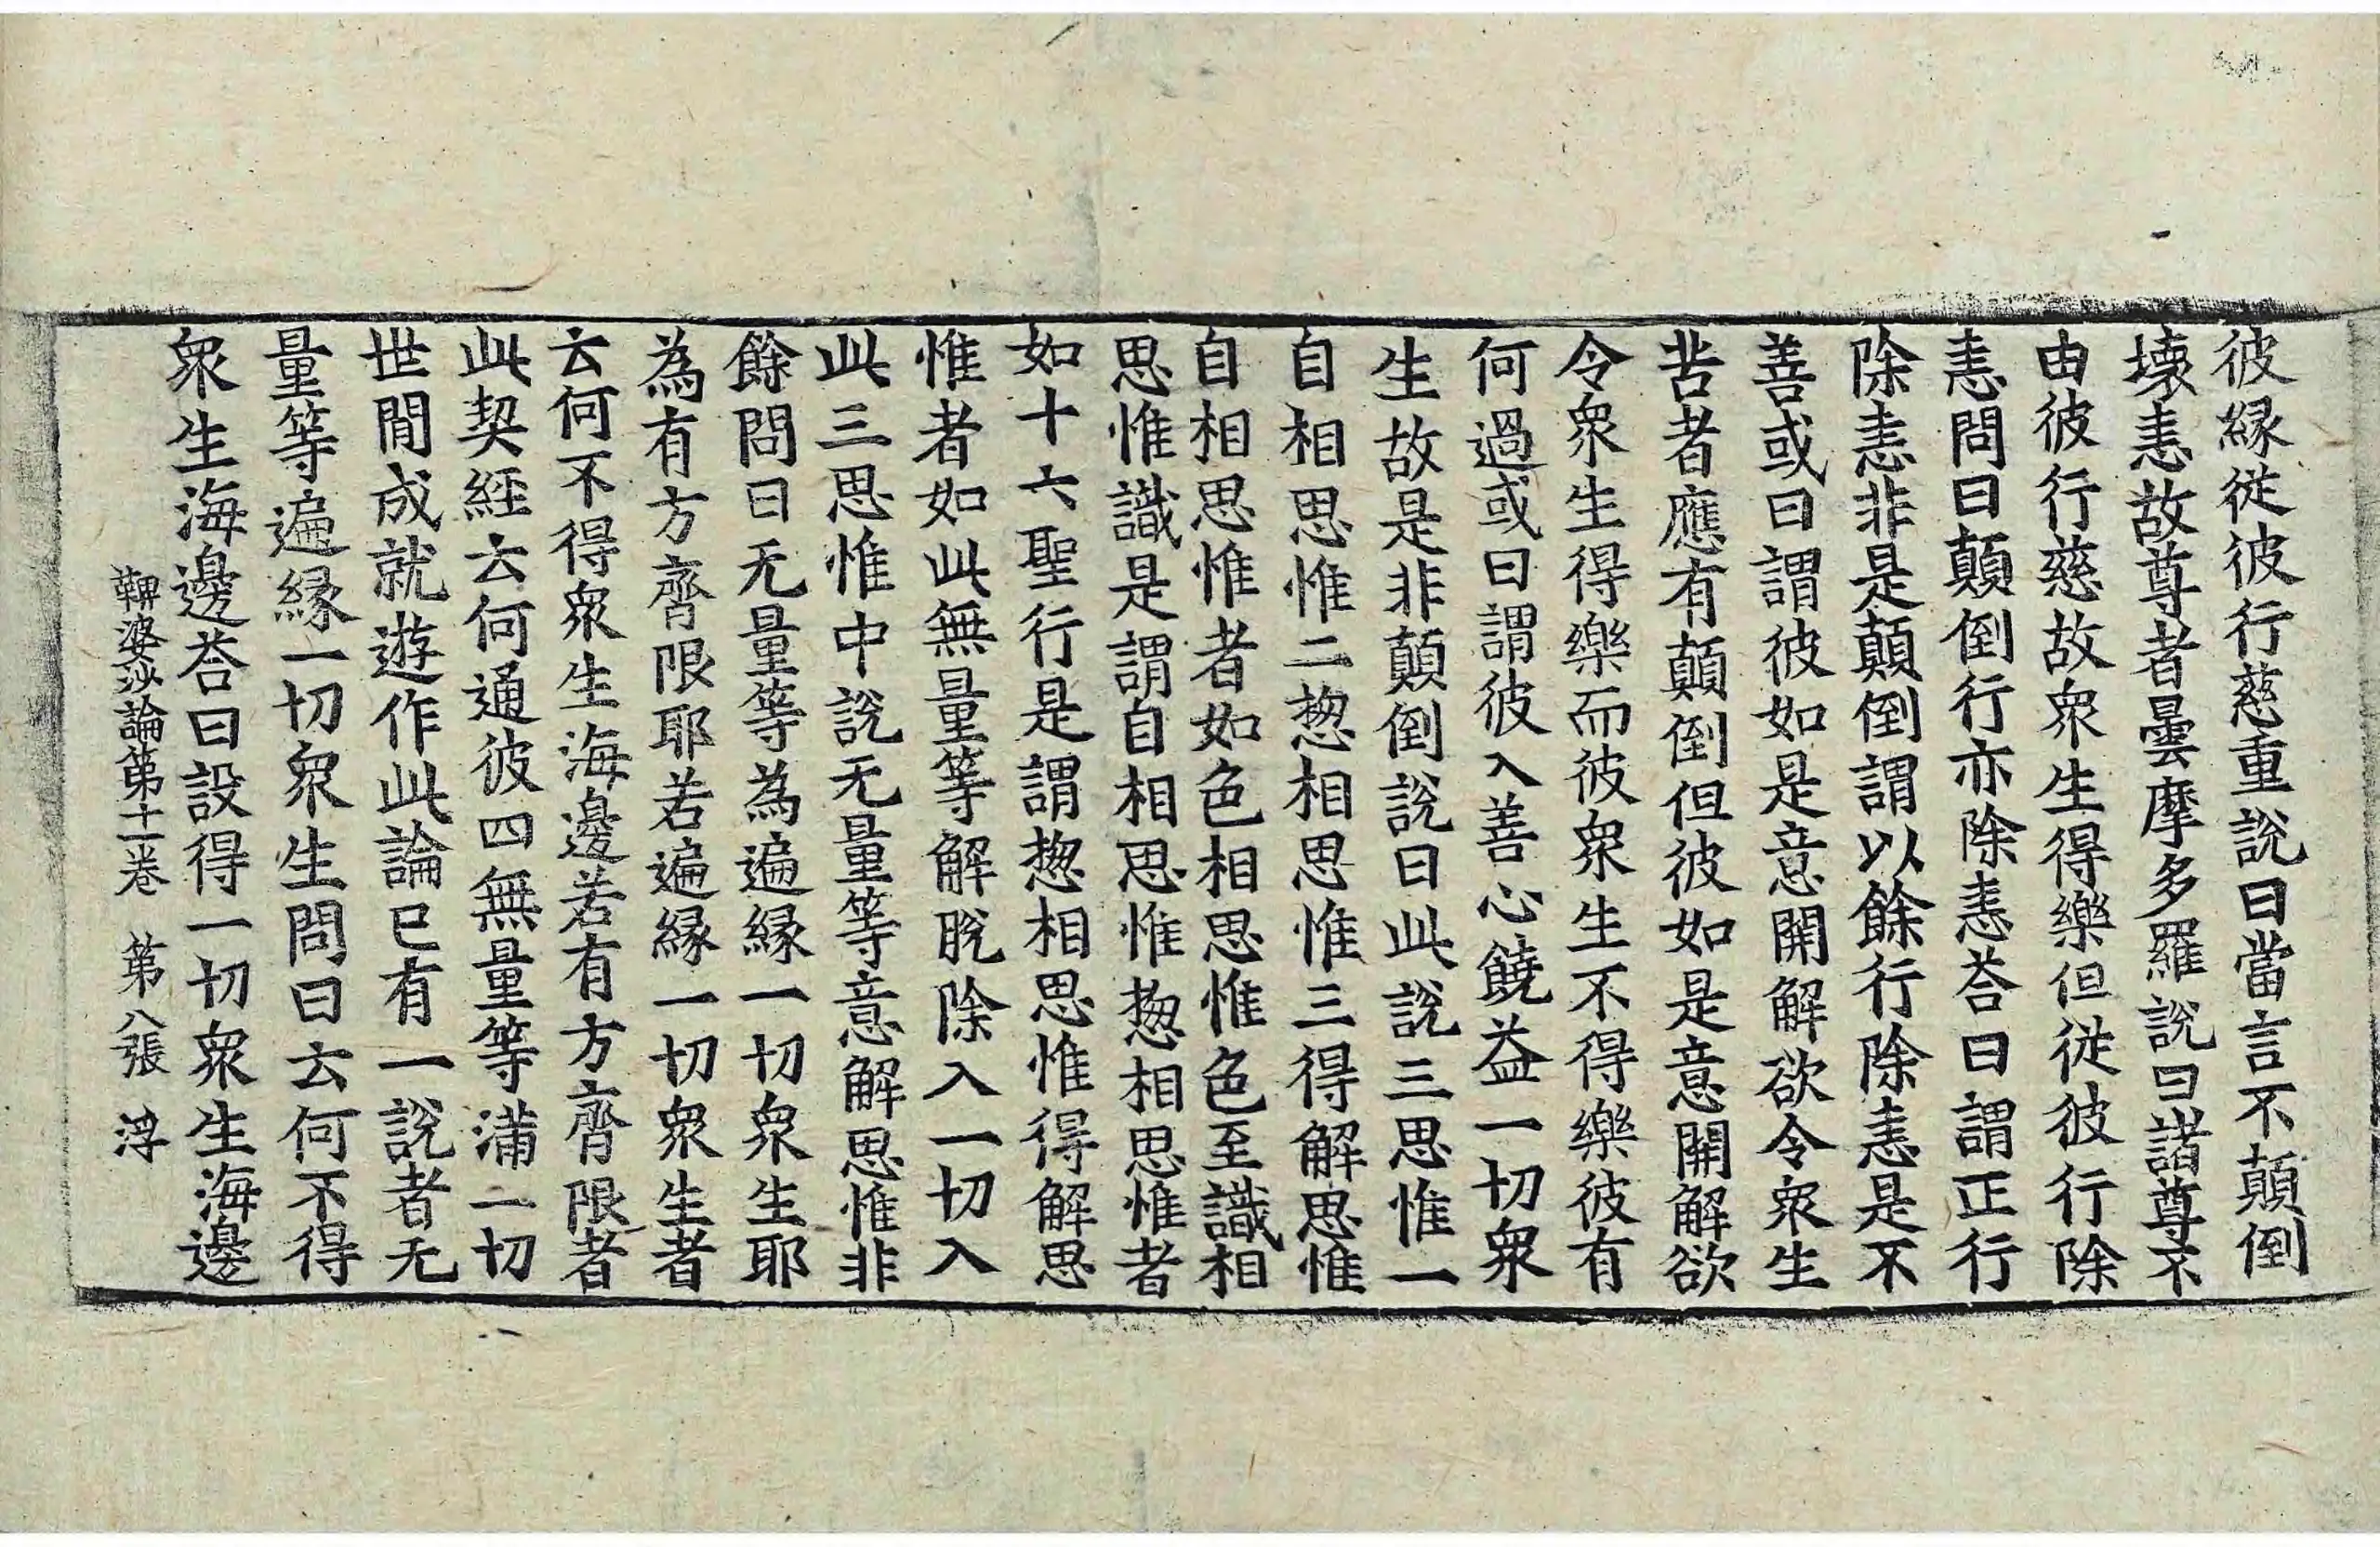 彼縁従彼行慈重說曰當言不顛倒
壊恚故尊者曇摩多羅說曰諸尊不
由彼行慈故衆生得樂但従彼行除
恚問曰顛倒行亦除恚荅曰謂正行
除恚非是顛倒謂以餘行除恚是不
善或曰謂彼如是意開解欲令衆生
苦者應有顛倒但彼如是意開解欲
令衆生得樂而彼衆生不得樂彼有
何過或曰謂彼入善心饒益一切衆
生故是非顛倒說曰此說三思惟一
自相思惟二揔相思惟三得解思惟
自相思惟者如色相思惟色至識相
思惟識是謂自相思惟揔相思惟者
如十六聖行是謂揔相思惟得解思
惟者如此無量等解脫除入一切入
此三思惟中說无量等意解思惟非
餘問曰无量等為遍縁一切衆生耶
為有方齊限耶若遍縁一切衆生者
云何不得衆生海邊若有方齊限者
此契經云何通彼四無量等滿一切
世間成就遊作此論已有一說者无
量等遍縁一切衆生問曰云何不得
衆生海邊荅曰設得一切衆生海邊
鞞婆沙論第十一卷 第八張 浮